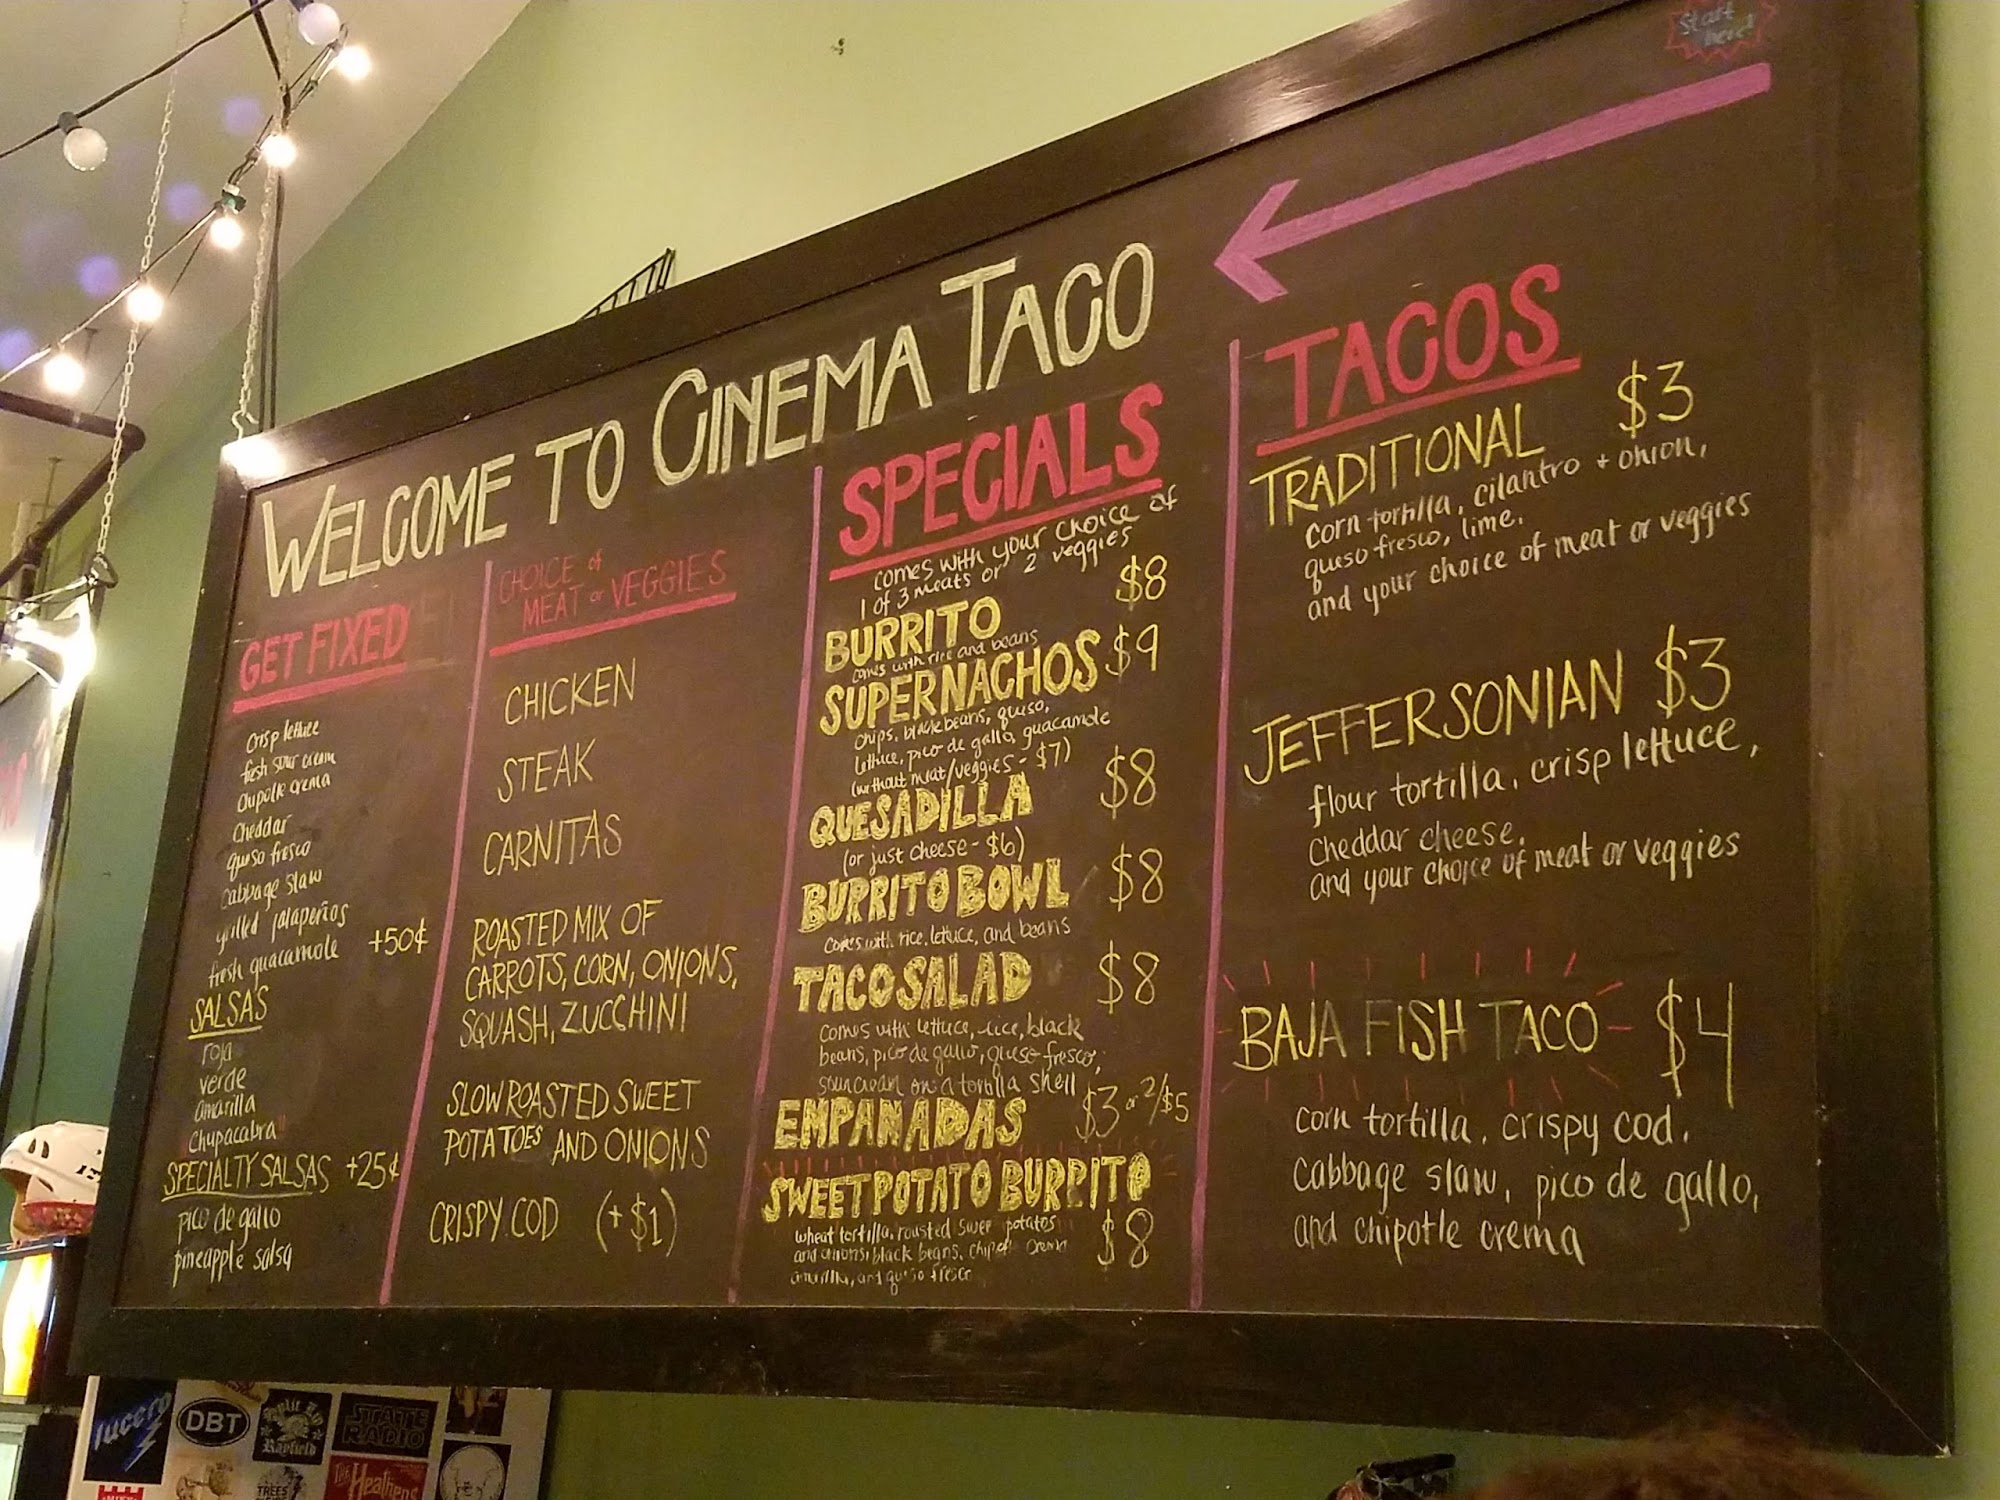 Start
here!
WELCOME TO CINEMA TACO
GET FIXED
crisp lettuce
fresh sour cream
chipotle crema
cheddar
queso fresco
cabbage slaw
grilled jalapeños
fresh guacamole +50¢
SALSAS
roja
verde
amarilla
"chupacabra"
SPECIALTY SALSAS +25¢
pico de gallo
pineapple salsa
CHOICE of
MEAT or VEGGIES
CHICKEN
STEAK
CARNITAS
ROASTED MIX OF
CARROTS, CORN, ONIONS,
SQUASH, ZUCCHINI
SLOW ROASTED SWEET
POTATOES AND ONIONS
CRISPY COD (+$1)
SPECIALS
comes with your choice of
1 of 3 meats or 2 veggies
BURRITO $8
comes with rice and beans
SUPERNACHOS $9
chips, black beans, queso,
lettuce, pico de gallo, guacamole
(without meat/veggies - $7)
QUESADILLA $8
(or just cheese - $6)
BURRITO BOWL $8
comes with rice, lettuce, and beans
TACO SALAD $8
comes with lettuce, rice, black
beans, pico de gallo, queso fresco,
sour cream on a tortilla shell
EMPANADAS $3 or 2/$5
SWEET POTATO BURRITO
wheat tortilla, roasted sweet potatos
and onions, black beans, chipotle crema
amarilla, and queso fresco $8
TACOS
TRADITIONAL $3
corn tortilla, cilantro + onion,
queso fresco, lime,
and your choice of meat or veggies
JEFFERSONIAN $3
flour tortilla, crisp lettuce,
cheddar cheese,
and your choice of meat or veggies
BAJA FISH TACO $4
corn tortilla, crispy cod,
cabbage slaw, pico de gallo,
and chipotle crema
lucero
DBT
Split Lip
Rayfield
STATE
RADIO
The Heathens
TREES